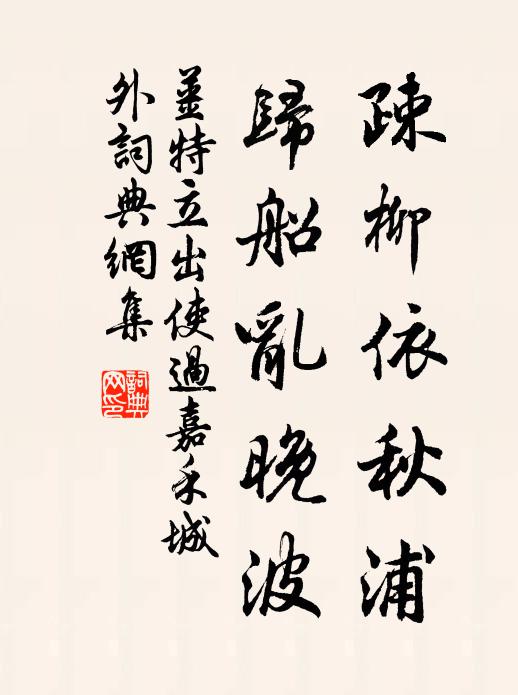 疎柳依秋浦
歸船亂晚波
姜特立出使過嘉禾城
外詞典網集
詞典网印